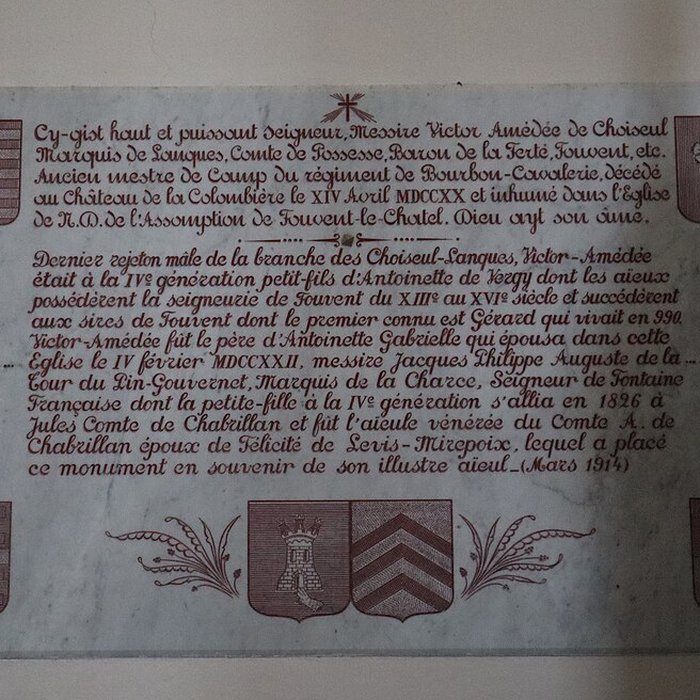 Cy-gist haut et puissant seigneur, Messire Victor Amédée de Choiseul
Marquis de Lanques, Comte de Possesse, Baron de la Ferté, Fouvent, etc.
Ancien mestre de Camp du régiment de Bourbon-Cavalerie, décédé
au Château de la Colombière le XIV Avril MDCCXX et inhumé dans l'Eglise
de N.D. de l'Assomption de Fouvent-le-Chatel. Dieu ayt son âme.
Dernier rejeton mâle de la branche des Choiseul-Lanques, Victor-Amédée
était à la IVe génération petit-fils d'Antoinette de Vergy dont les aïeux
possédèrent la seigneurie de Fouvent du XIIIe au XVIe siècle et succédèrent
aux sires de Fouvent dont le premier connu est Gérard qui vivait en 990.
Victor-Amédée fût le père d'Antoinette Gabrielle qui épousa dans cette
Eglise le IV février MDCCXXII, messire Jacques Philippe Auguste de la
Tour du Pin-Gouvernet, Marquis de la Charce, Seigneur de Fontaine
Française dont la petite-fille à la IVe génération s'allia en 1826 à
Jules Comte de Chabrillan et fût l'aieule vénérée du Comte A. de
Chabrillan époux de Félicité de Levis-Mirepoix, lequel a placé
ce monument en souvenir de son illustre aïeul_(Mars 1914)